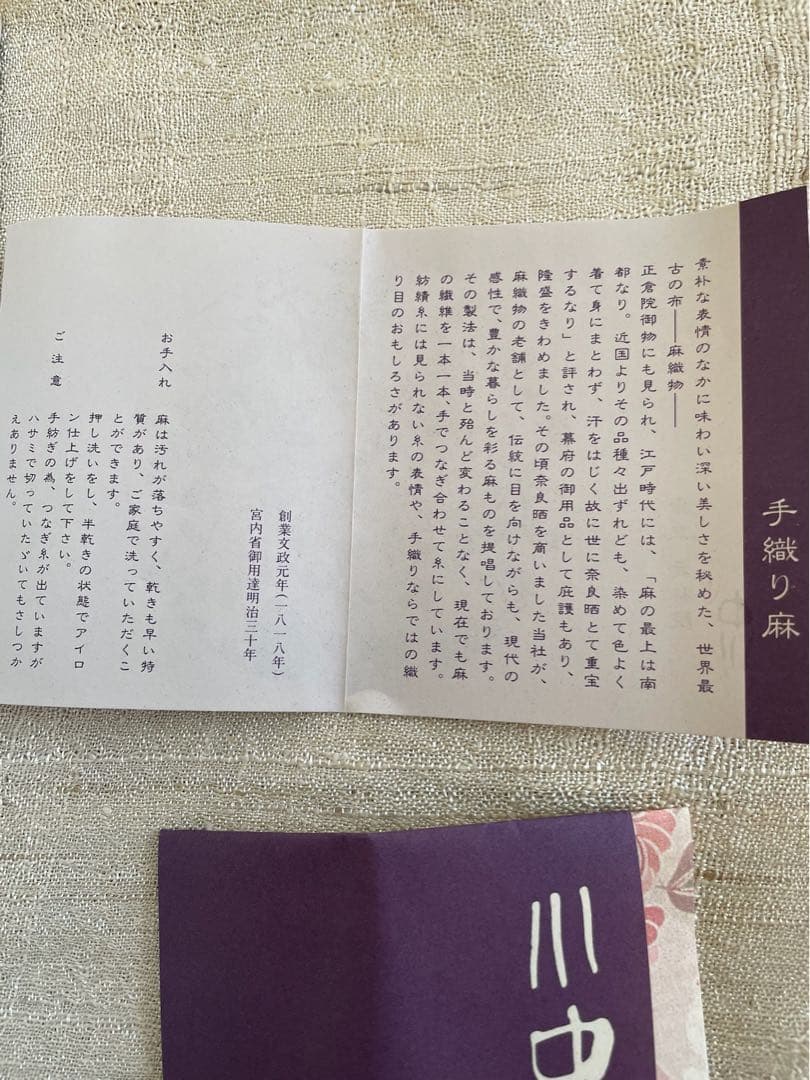 手織り麻
素朴な表情のなかに味わい深い美しさを秘めた、世界最
古の布——麻織物——
正倉院御物にも見られ、江戸時代には、「麻の最上は南
都なり。近国よりその品種々出ずれども、染めて色よく
着て身にまとわず、汗をはじく故に世に奈良晒とて重宝
するなり」と評され、幕府の御用品として庇護もあり、
隆盛をきわめました。その頃奈良晒を商いました当社が、
麻織物の老舗として、伝統に目を向けながらも、現代の
感性で、豊かな暮らしを彩る麻ものを提唱しております。
その製法は、当時と殆んど変わることなく、現在でも麻
の繊維を一本一本、手でつなぎ合わせて糸にしています。
紡績糸には見られない糸の表情や、手織りならではの織
り目のおもしろさがあります。
創業文政元年(一八一八年)
宮内省御用達明治三十年
お手入れ
麻は汚れが落ちやすく、乾きも早い特
質があり、ご家庭で洗っていただくこ
とができます。
押し洗いをし、半乾きの状態でアイロ
ン仕上げをして下さい。
ご注意
手紡ぎの為、つなぎ糸が出ていますが
ハサミで切っていたゞいてもさしつか
えありません。
川中